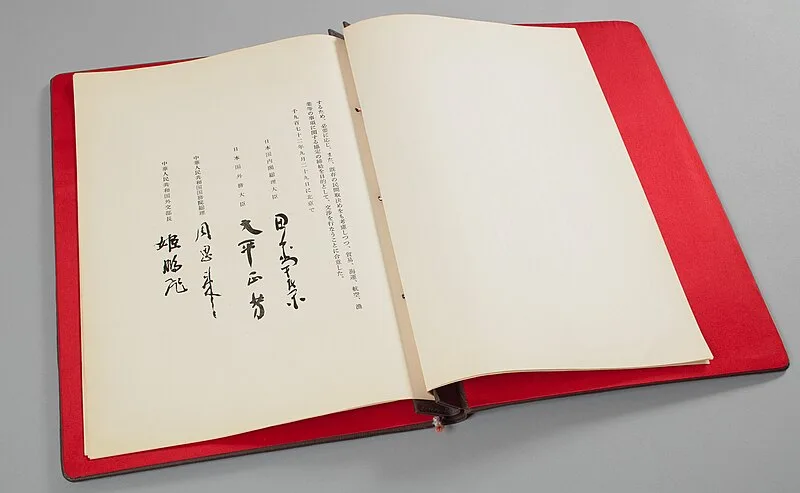 するため、必要に応じ、また、既存の民間取決めをも考慮しつつ、貿易、海運、航空、漁
業等の事項に関する協定の締結を目的として、交渉を行なうことに合意した。
千九百七十二年九月二十九日に北京で
日本国内閣総理大臣
田中角榮
日本国外務大臣
大平正芳
中華人民共和国国務院総理
周恩来
中華人民共和国外交部長
姫鵬飛